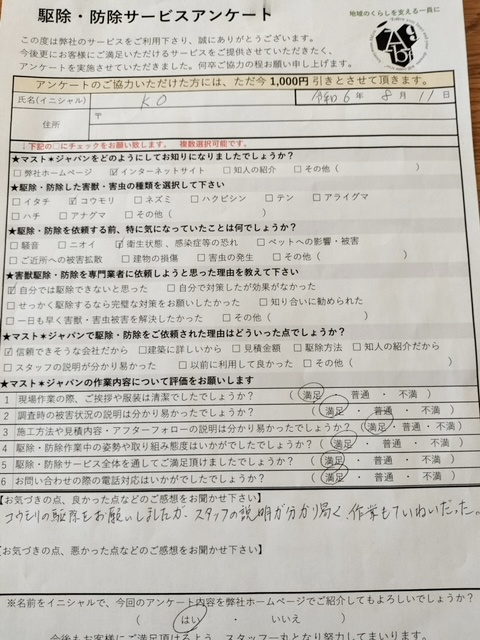 駆除・防除サービスアンケート
地域のくらしを支える一員に
この度は弊社のサービスをご利用下さり、誠にありがとうございます。
今後更にお客様にご満足いただけるサービスをご提供させていただきたく、
アンケートを実施させていただきました。何卒ご協力の程お願い申し上げます。
アンケートのご協力いただけた方には、ただ今1,000円引きとさせて頂きます。
氏名(イニシャル) KO 令和6年8月11日
住所 〒
↓下記の□にチェックをお願い致します。 複数選択可能です。
★マスト✶ジャパンをどのようにしてお知りになりましたでしょうか?
□弊社ホームページ ☑インターネットサイト □知人の紹介 □その他( )
★駆除・防除した害獣・害虫の種類を選択して下さい
□イタチ ☑コウモリ □ネズミ □ハクビシン □テン □アライグマ
□ハチ □アナグマ □その他( )
★駆除・防除を依頼する前、特に気になっていたことは何でしょうか?
□騒音 □ニオイ ☑衛生状態、感染症等の恐れ □ペットへの影響・被害
□ご近所への被害拡散 □建物の損傷 □害虫の発生 □その他( )
★害獣駆除・防除を専門業者に依頼しようと思った理由を教えて下さい
☑自分では駆除できないと思った □自分で対策したが効果がなかった
□せっかく駆除するなら完璧な対策をお願いしたかった □知り合いに勧められた
□一日も早く害獣・害虫被害を解決したかった □その他( )
★マスト✶ジャパンで駆除・防除をご依頼された理由はどういった点でしょうか?
☑信頼できそうな会社だから □建築に詳しいから □見積金額 □駆除方法 □知人の紹介だから
□スタッフの説明が分かり易かった □以前に利用して良かった □その他( )
★マスト✶ジャパンの作業内容について評価をお願いします
1 現場作業の際、ご挨拶や服装は清潔でしたでしょうか? ( 満足 ・ 普通 ・ 不満 )
2 調査時の被害状況の説明は分かり易かったでしょうか? ( 満足 ・ 普通 ・ 不満 )
3 施工方法や見積内容・アフターフォローの説明は分かり易かったでしょうか? ( 満足 ・ 普通 ・ 不満 )
4 駆除・防除作業中の姿勢や取り組み態度はいかがでしたでしょうか? ( 満足 ・ 普通 ・ 不満 )
5 駆除・防除サービス全体を通してご満足頂けましたでしょうか? ( 満足 ・ 普通 ・ 不満 )
6 お問い合わせの際の電話対応はいかがでしたでしょうか? ( 満足 ・ 普通 ・ 不満 )
【お気づきの点、良かった点などのご感想をお聞かせ下さい】
コウモリの駆除をお願いしましたが、スタッフの説明が分かり易く、作業もていねいだった。
【お気づきの点、悪かった点などのご感想をお聞かせ下さい】
※名前をイニシャルで、今回のアンケート内容を弊社ホームページでご紹介してもよろしいでしょうか?
( はい ・ いいえ )
今後もお客様にご満足頂けるよう、スタッフ一丸となり努力してまいります。